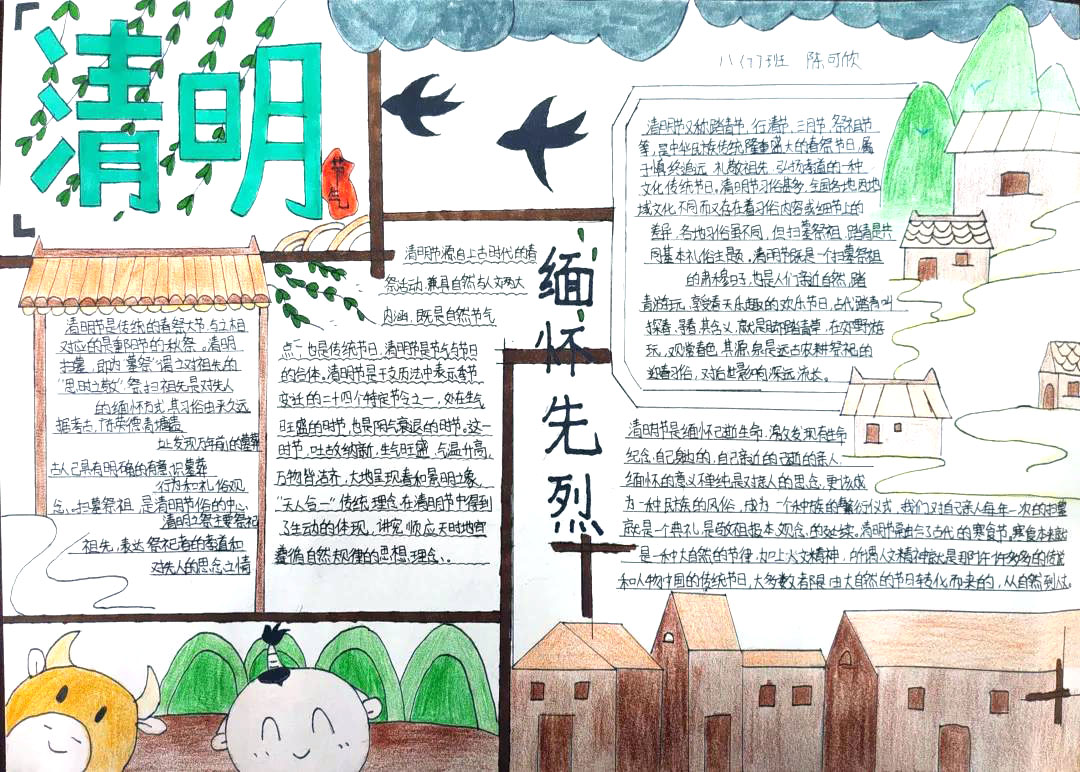 清明
节气
八(7)班 陈可欣
清明节又称踏青节、行清节、三月节、祭祖节
等,是中华民族传统隆重盛大的春祭节日,属
于慎终追远、礼敬祖先、弘扬孝道的一种
文化传统节日。清明节习俗甚多,全国各地因地
域文化不同而又存在着习俗内容或细节上的
差异,各地习俗虽不同,但扫墓祭祖、踏青是共
同基本礼俗主题。清明节既是一个扫墓祭祖
的肃穆日子,也是人们亲近自然、踏
青游玩、享受春天乐趣的欢乐节日,古代踏青叫
探春、寻春,其含义,就是脚踏青草,在郊野游
玩,观赏春色,其源泉是远古农耕祭祀的
迎春习俗,对后世影响深远流长。
清明节源自上古时代的春
祭活动,兼具自然与人文两大
内涵,既是自然节气
点,也是传统节日,清明节是节气与节日
的合体。清明节是干支历法中表示季节
变迁的二十四个特定节令之一,处在生气
旺盛的时节,也是阴气衰退的时节。这一
时节,吐故纳新、生气旺盛、气温升高,
万物皆洁齐,大地呈现春和景明之象。
“天人合一”传统理念在清明节中得到
了生动的体现,讲究顺应天时地宜
遵循自然规律的思想理念。
缅怀先烈
清明节是传统的春祭大节,与之相
对应的是重阳节的秋祭。清明
扫墓,即为“墓祭”谓之对祖先的
“思时之敬”祭扫祖先是对先人
的缅怀方式,其习俗由来久远
据考古,广东英德青塘遗
址发现万年前的墓葬
古人已具有明确的有意识墓葬
行为和礼俗观
念。扫墓祭祖,是清明节俗的中心
清明之祭主要祭祀
祖先,表达祭祀者的孝道和
对先人的思念之情
清明节是缅怀已逝生命,激发现有生命
纪念自己身边的,自己亲近的已逝的亲人,
缅怀的意义不单纯是对故人的思念,更该成
为一种民族的风俗,成为一个种族的繁衍仪式,我们对自己亲人每年一次的扫墓
就是一个典礼,是敬祖报本观念的延续。清明节融合了古代的寒食节,寒食本就
是一种大自然的节律,加上人文精神,所谓人文精神就是那许许多多的传说
和人物,中国的传统节日,大多数都是由大自然的节日转化而来的,从自然到人文。